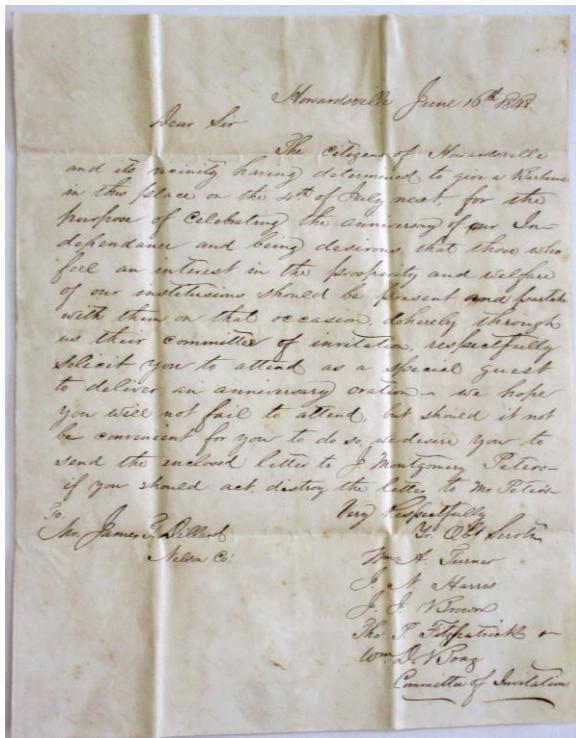 Howardsville June 16th 1848
Dear Sir
The Citizens of Howardsville
and its vicinity having determined to give a
in this place on the 4th of July next, for the
purpose of Celebrating the anniversary of our In-
dependance and being desirous, that those who
feel an interest in the prosperity and welfare
of our institusions should be present and partake
with them on that occasion, dohereby through
us their committee of invitation, respectfully
solicit you to attend as a special guest
to deliver an anniversary oration - we hope
you will not fail to attend, but should it not
be convenient for you to do so, we desire you to
send the enclosed letter to J. Montgomery Peters-
if you should act, distroy the letter to Mr Peters-
Very Respectfully
To
Yr. Obt Servts
Mr. James P. Dillard
Nelson Co:
Wm A. Turner
J. N. Harris
J. J. Brown
Tho P. Fitzpatrick &
Wm. D.
Committee of Invitation